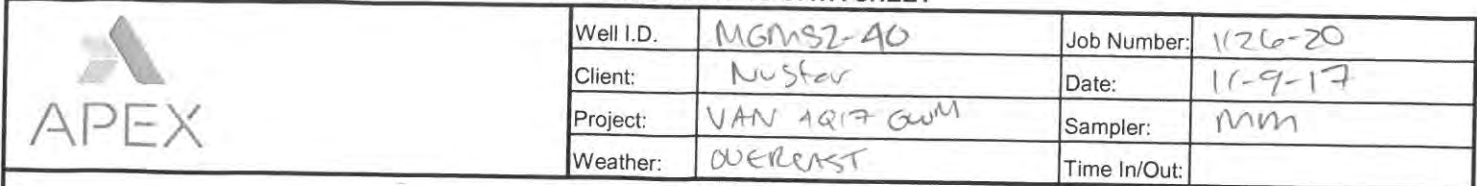 APEX
Well I.D. MGMS2-40 Job Number: 1126-20
Client: NuStar Date: 11-9-17
Project: VAN 4Q17 GWM Sampler: MM
Weather: OVERCAST Time In/Out: